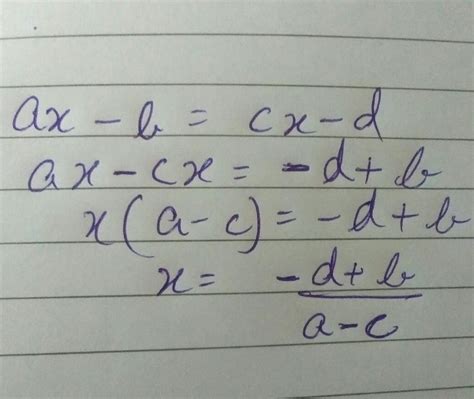 ax - b = cx - d
ax - cx = -d + b
x(a - c) = -d + b
x = -d + b
a - c